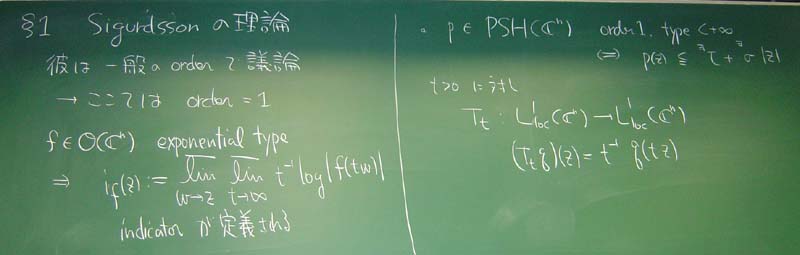 §1 Sigurdsson の理論
彼は一般の order で議論
→ ここでは order = 1
f ∈ O(ℂⁿ) exponential type
⇒ i_f(z) := \overline{lim}_{w→z} \overline{lim}_{t→∞} t⁻¹ log|f(tw)|
indicator が定義される
• p ∈ PSH(ℂⁿ) order 1, type < +∞
⇔ p(z) ≦ ∃τ + ∃σ|z|
t>0 に対し
T_t : L¹_loc(ℂⁿ) → L¹_loc(ℂⁿ)
(T_t q)(z) = t⁻¹ q(tz)